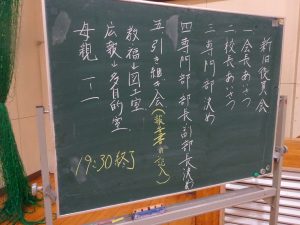 新旧役員会
一 会長あいさつ
二 校長あいさつ
三 専門部決め
四 専門部部長、副部長決め
五 引き継ぎ会
教福→図工室
広報→多目的室
母親
19:30終了